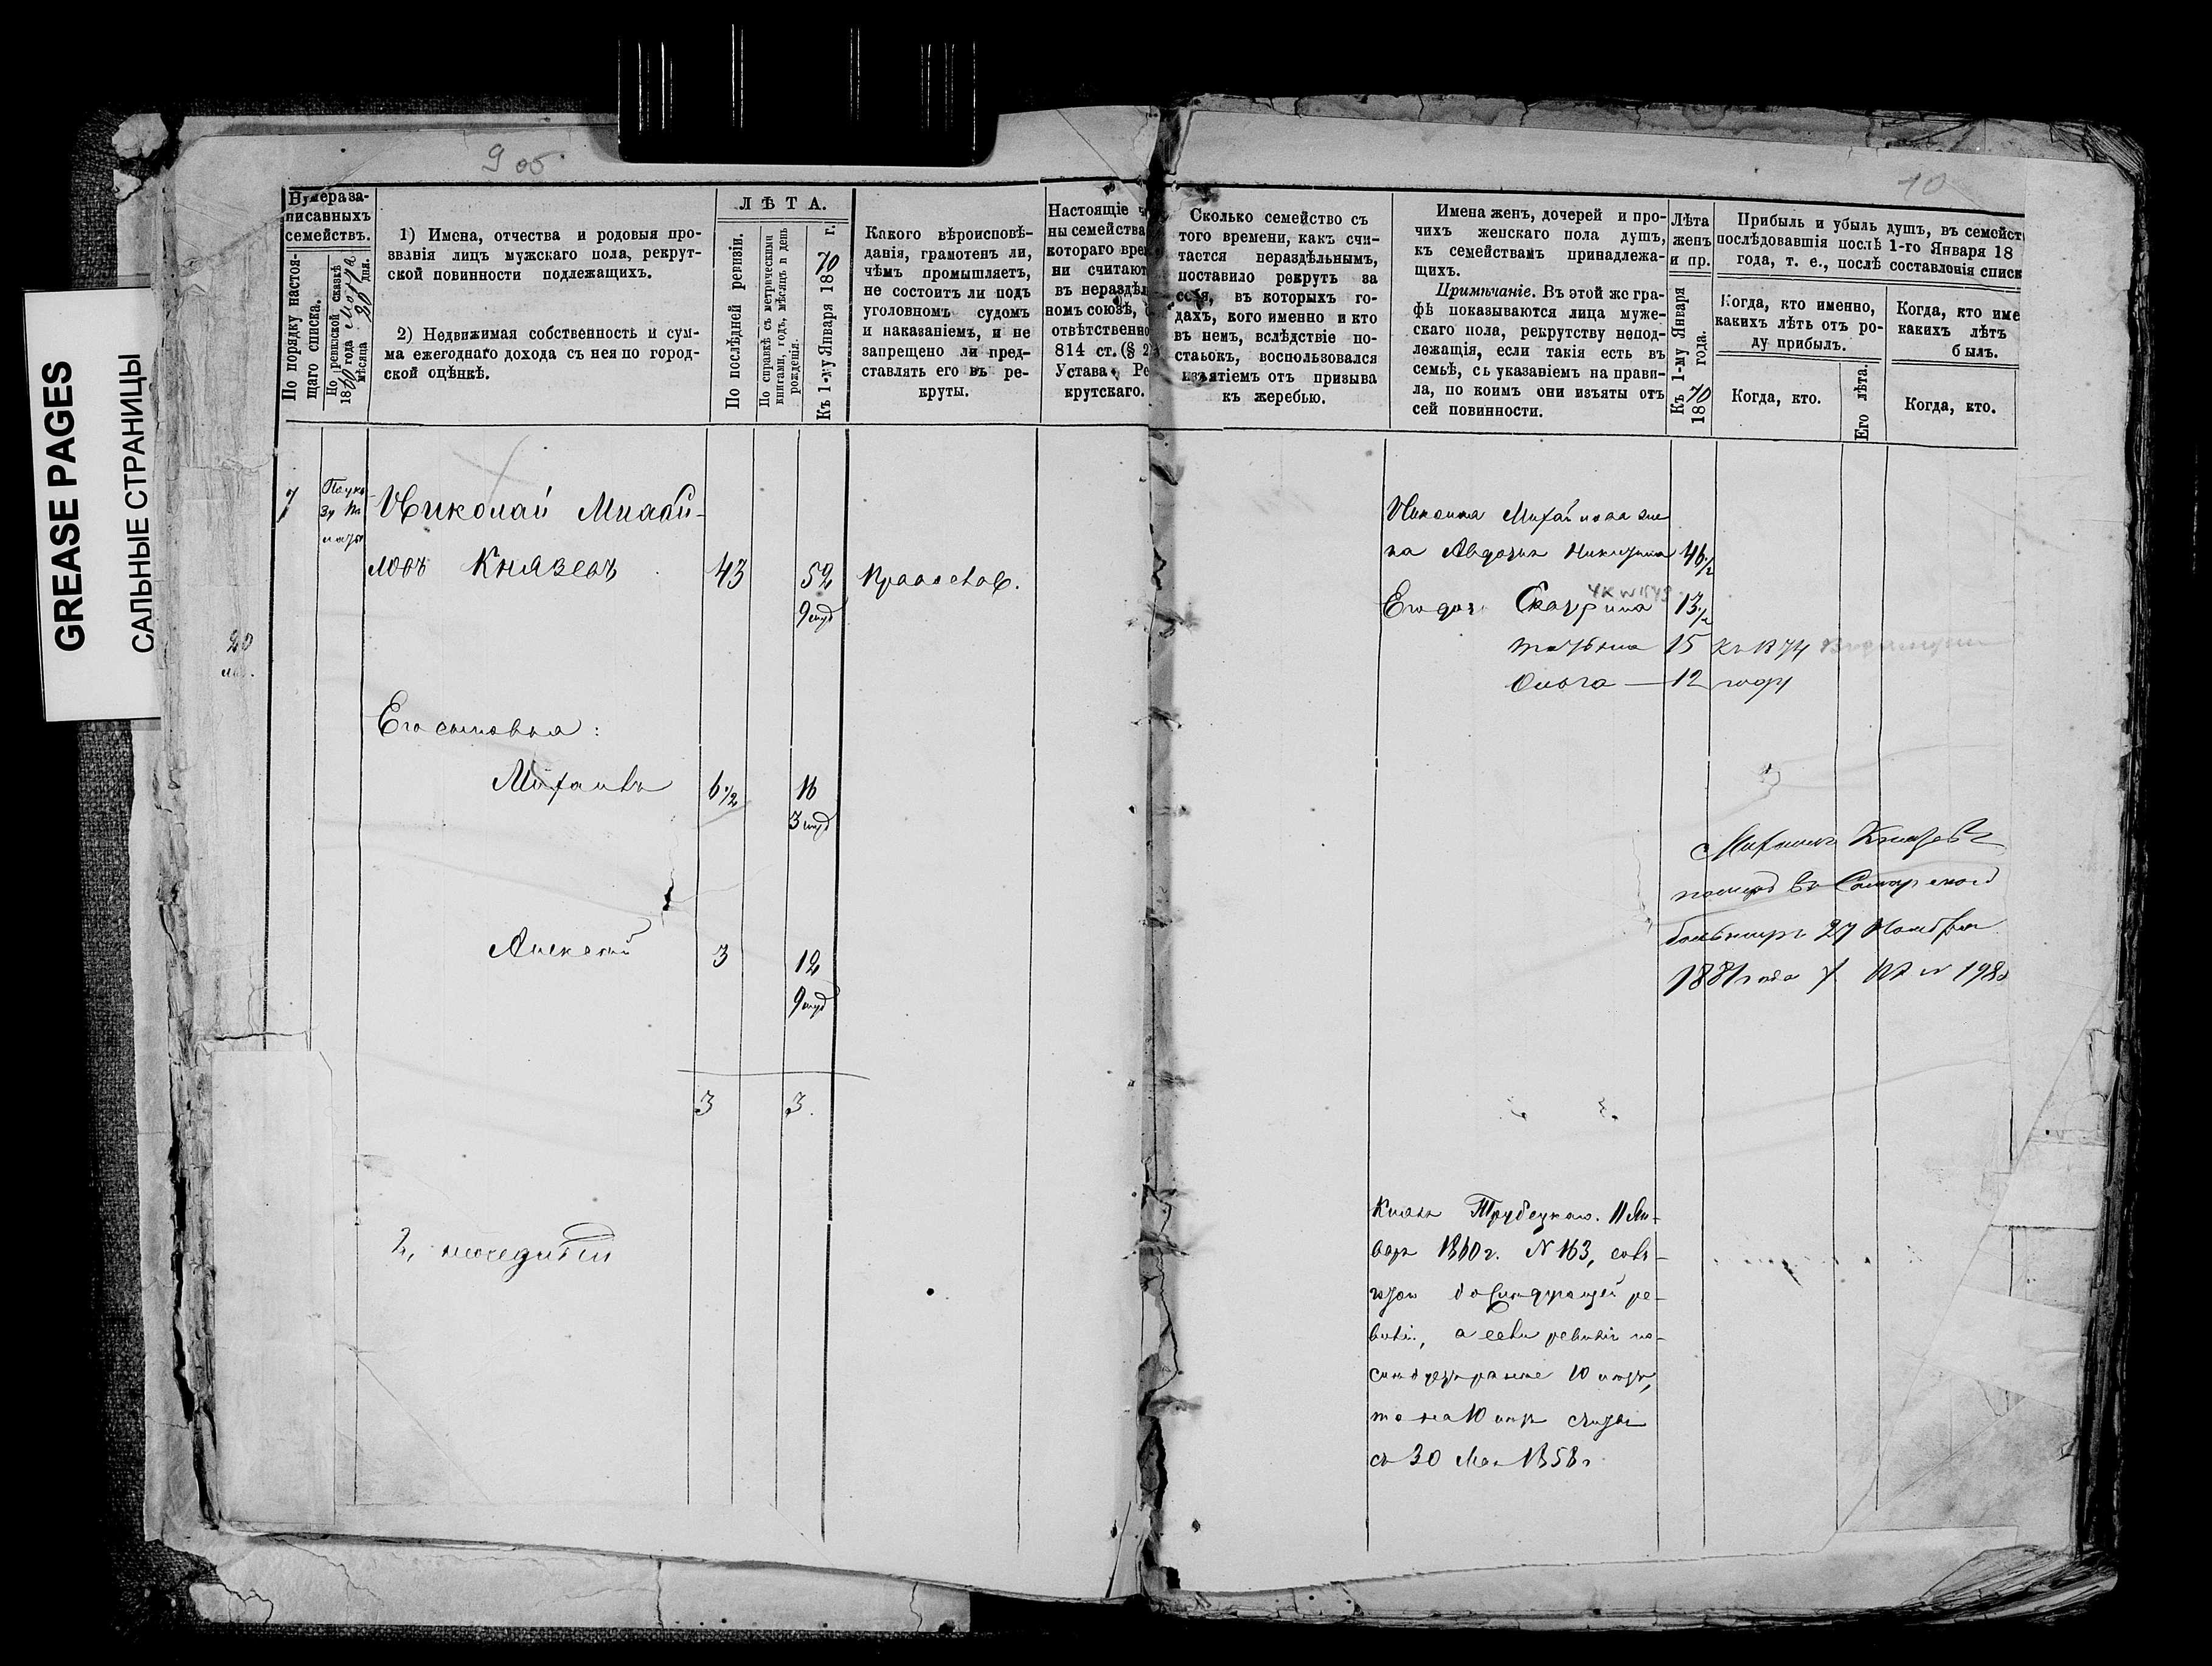 GREASE PAGES
САЛЬНЫЕ СТРАНИЦЫ
9 об
10
Нумера за-
писанныхъ
семействъ.
По порядку настоя-
щаго списка.
По ревизской сказкѣ
18 года
мѣсяца дня.
1) Имена, отчества и родовыя про-
званія лицъ мужскаго пола, рекрут-
ской повинности подлежащихъ.
2) Недвижимая собственность и сум-
ма ежегоднаго дохода съ нея по город-
ской оцѣнкѣ.
ЛѢТА.
По послѣдней ревизіи.
По справкѣ съ метрическими
книгами, годъ, мѣсяцъ и день
рожденія.
Къ 1-му Января 1870 г.
Какого вѣроисповѣ-
данія, грамотенъ ли,
чѣмъ промышляетъ,
не состоитъ ли подъ
уголовномъ судомъ
и наказаніемъ, и не
запрещено ли пред-
ставлять его въ ре-
круты.
Настоящіе
ны семейства
котораго вре
ни считают
въ нераздѣл
номъ союзѣ,
отвѣтственно
814 ст. (§ 2
Устава Ре
крутскаго.
Сколько семейство съ
того времени, какъ счи-
тается нераздѣльнымъ,
поставило рекрутъ за
себя, въ которыхъ го-
дахъ, кого именно и кто
въ немъ, вслѣдствіе по-
стаьокъ, воспользовался
изъятіемъ отъ призыва
къ жеребью.
Имена женъ, дочерей и про-
чихъ женскаго пола душъ,
къ семействамъ принадлежа-
щихъ.
Примѣчаніе. Въ этой же гра-
фѣ показываются лица муже-
скаго пола, рекрутству непод-
лежащія, если такія есть въ
семьѣ, съ указаніемъ на прави-
ла, по коимъ они изъяты отъ
сей повинности.
Лѣта
женъ
и пр.
Къ 1-му Января
1870 года.
Прибыль и убыль душъ, въ семейст
послѣдовавшія послѣ 1-го Января 18
года, т. е., послѣ составленія списк
Когда, кто именно,
какихъ лѣтъ отъ ро-
ду прибылъ.
Когда, кто.
Его лѣта.
Когда, кто име
какихъ лѣтъ
былъ.
Когда, кто.
7
Николай Михай-
ловъ Князевъ 43 52 Православ.
9 мѣс
20
Его сыновья:
Михаилъ 6 1/2 16
3 мѣс
Алексѣй 3 12
9 мѣс
3 3.
Николая Михайлова же-
на Авдотья Никитина 46 1/2
Его доч. Екатерина 13 1/2
Татьяна 15
Ольга — 12
Михаилъ Князевъ
въ Самарской
больницѣ 27 Ноября
1881 года
Князя Трубецкаго. 11 Ян-
варя 1860 г. N 163,
до слѣдующей ре-
визіи, а если ревизія по-
слѣдуетъ ранее 10 лѣтъ,
то на 10 лѣтъ считая
съ 30 Мая 1858 г.